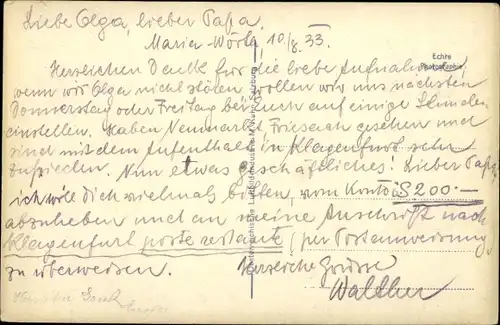 Liebe Olga, lieber Papa.
Maria-Wörth, 10./8.33.
Echte
Photographie
Herzlichen Dank für die liebe Aufnahme,
wenn wir Olga nicht stören wollen wir uns nächsten
Donnerstag oder Freitag bei euch auf einige Stunden
einstellen. Haben Neumarkt, Friesach gesehen und
sind mit dem Aufenthalt in Klagenfurt sehr
zufrieden. Nun etwas geschäftliches! Lieber Papa,
ich will Dich vielmals bitten, vom Konto S 200.—
abzuheben und an meine Anschrift nach
Klagenfurt poste restante (per Postanweisung)
zu überweisen.
Herzliche Grüsse
Walther